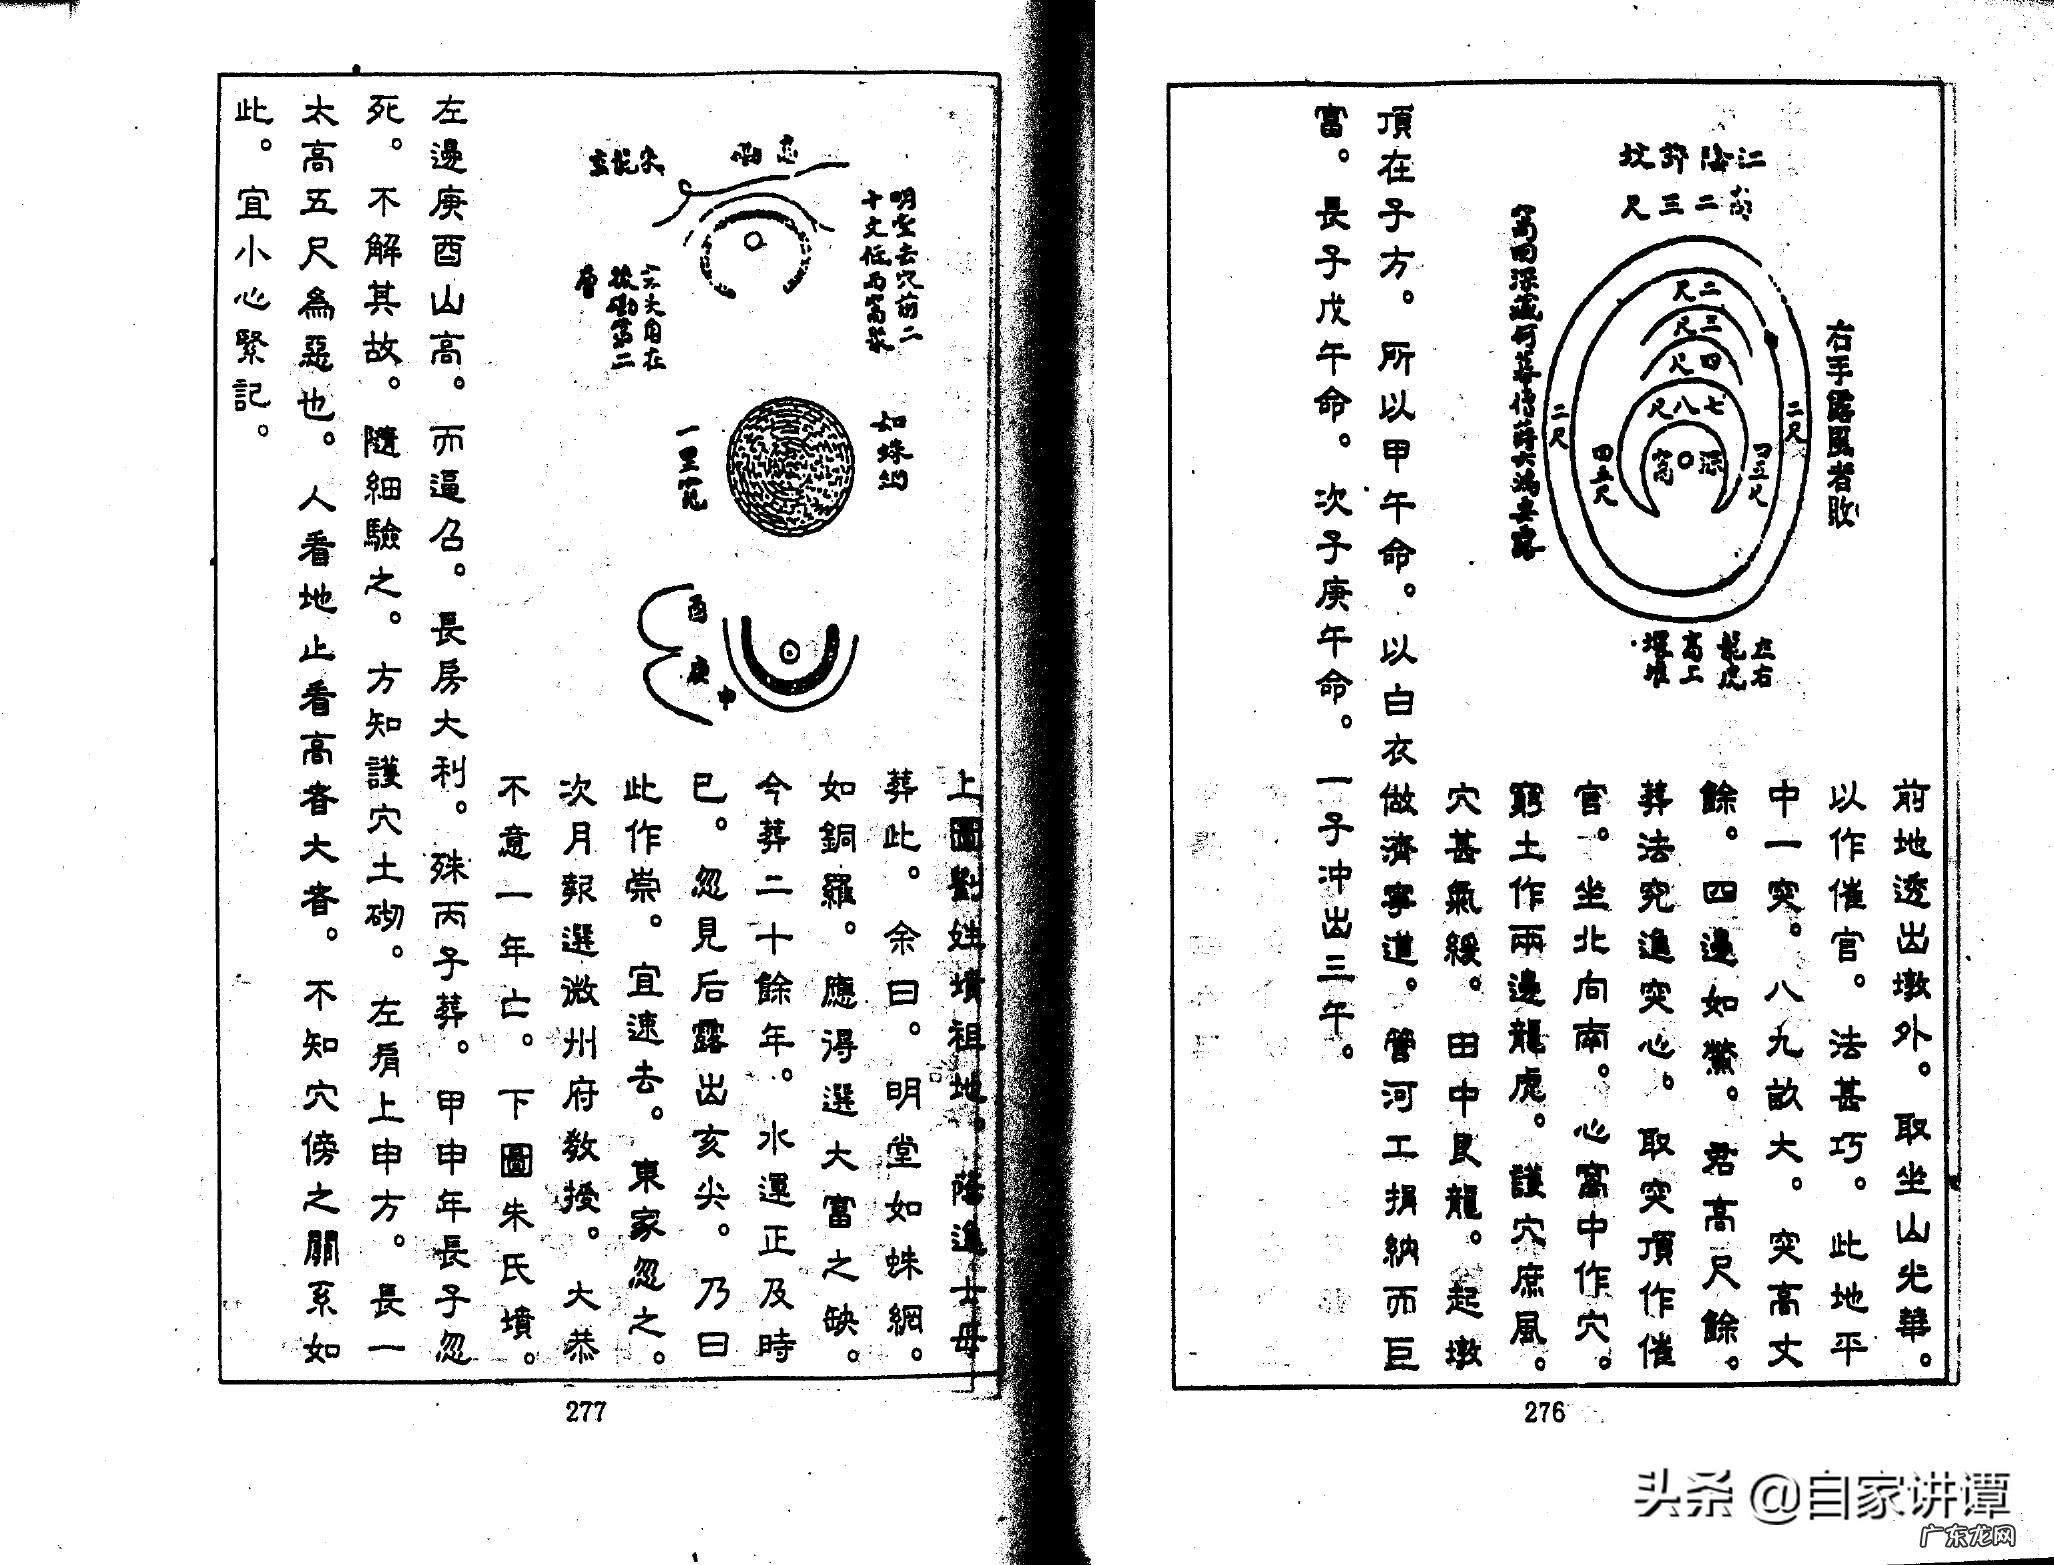 江陰蔣坟
二三尺
右手露風者敗
二尺
三尺
四尺
七八尺
深窩
二尺
二尺
四五尺
左右
龍虎
高工
前地透出墩外。取坐山光華。
以作催官。法甚巧。此地平
中一突。八九畝大。突高丈
餘。四邊如鱉。君高尺餘。
葬法究進突心。取突頂作催
官。坐北向南。心窩中作穴。
窮土作兩邊龍虎。護穴庶風。
穴甚氣緩。田中艮龍。起墩
頂在子方。所以甲午命。以白衣做濟寧道。管河工捐納而巨
富。長子戊午命。次子庚午命。一子冲出三午。
276
明堂去穴前二
如蛛網
酉
庚
申
上圖劉姓墳祖地。蔭進士母
葬此。余曰。明堂如蛛網。
如銅羅。應得選大富之缺。
今葬二十餘年。水運正及時
已。忽見后露出亥尖。乃曰
此作祟。宜速去。東家忽之。
次月報選徽州府教授。大恭
不意一年亡。下圖朱氏墳。
左邊庚酉山高。而逼召。長房大利。殊丙子葬。甲申年長子忽
死。不解其故。隨細驗之。方知護穴土砌。左肩上申方。長一
太高五尺為惡也。人看地止看高者大者。不知穴傍之關系如
此。宜小心緊記。
277
头条 @自家讲谭
广东龙网